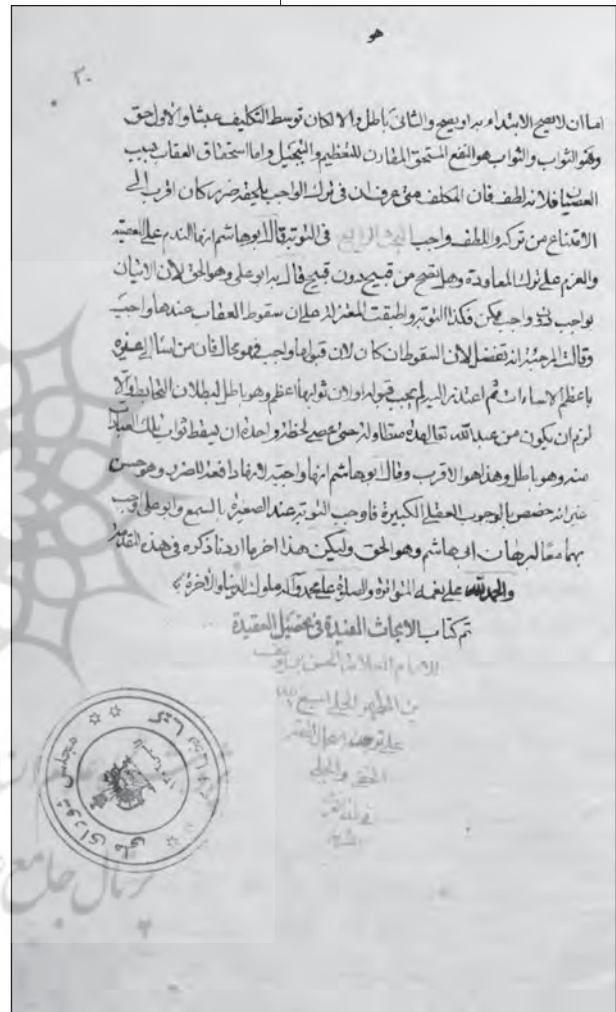 هو
٢٠
اما ان لا يصح الابتداء به او يصح والثانى باطل والا لكان توسط التكليف عبثا والاول حق
وهو الثواب والثواب هو النفع المستحق المقارن للتعظيم والتبجيل واما استحقاق العقاب بسبب
العصيان فلانه لطف فان المكلف متى عرف ان فى ترك الواجب يلحقه ضرر كان اقرب الى
الامتناع من تركه واللطف واجب البحث الرابع فى التوبة قال ابو هاشم انها الندم على المعصية
والعزم على ترك المعاودة وهل تصح من قبيح دون قبيح قال به ابو على وهو الحق لان الاتيان
بواجب دون واجب ممكن فكذا التوبة واطبقت المعتزلة على ان سقوط العقاب عندها واجب
وقالت المرجئة انه تفضل لان السقوط ان كان لان قبولها واجب فهو محال فان من اساء الى غيره
باعظم الاساءات ثم اعتذر اليه لم يجب قبوله او لان ثوابها اعظم وهو باطل لبطلان التحابط والا
لزم ان يكون من عبد الله تعالى مدة متطاولة ثم عصى لحظة واحدة ان يسقط ثواب تلك العبادة
عنه وهو باطل وهذا هو الاقرب وقال ابو هاشم انها واجبة لانها دافعة للضرر وهو حسن
غير انه خصص الوجوب العقلى بالكبيرة فاوجب التوبة عند الصغيرة بالسمع وابو على اوجب
بهما معا لبرهان ابى هاشم وهو الحق وليكن هذا اخر ما اردنا ذكره فى هذه المقدمة
والحمد لله على نعمه المتواترة والصلوة على محمد وآله ملوك الدنيا والآخرة
تم كتاب الابحاث المفيدة فى تحصيل العقيدة
للامام العلامة الحسن بن يوسف
بن المطهر الحلى
مجلس شوراى ملى